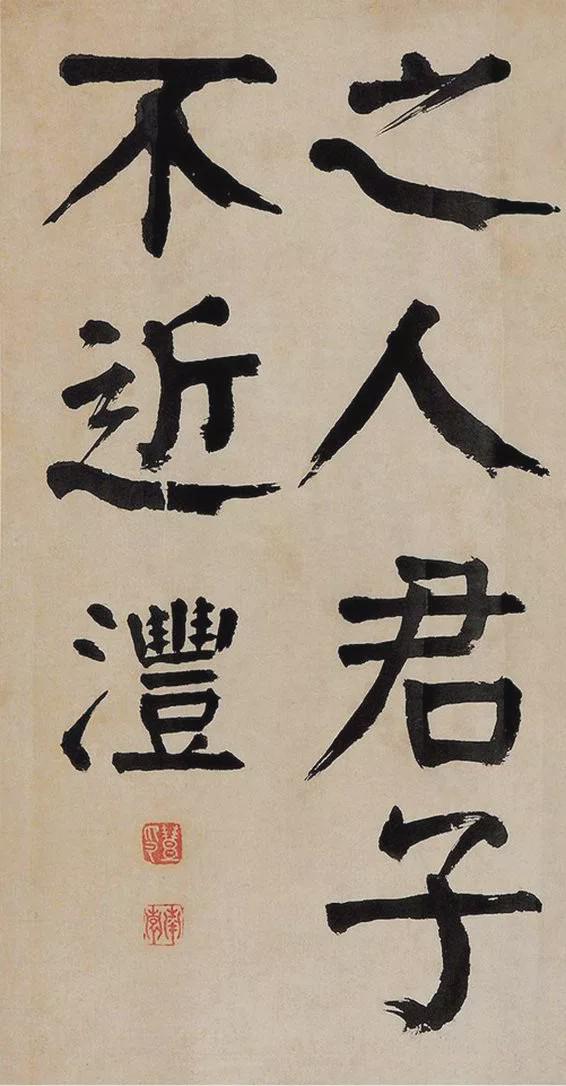 之人君子
不近灃